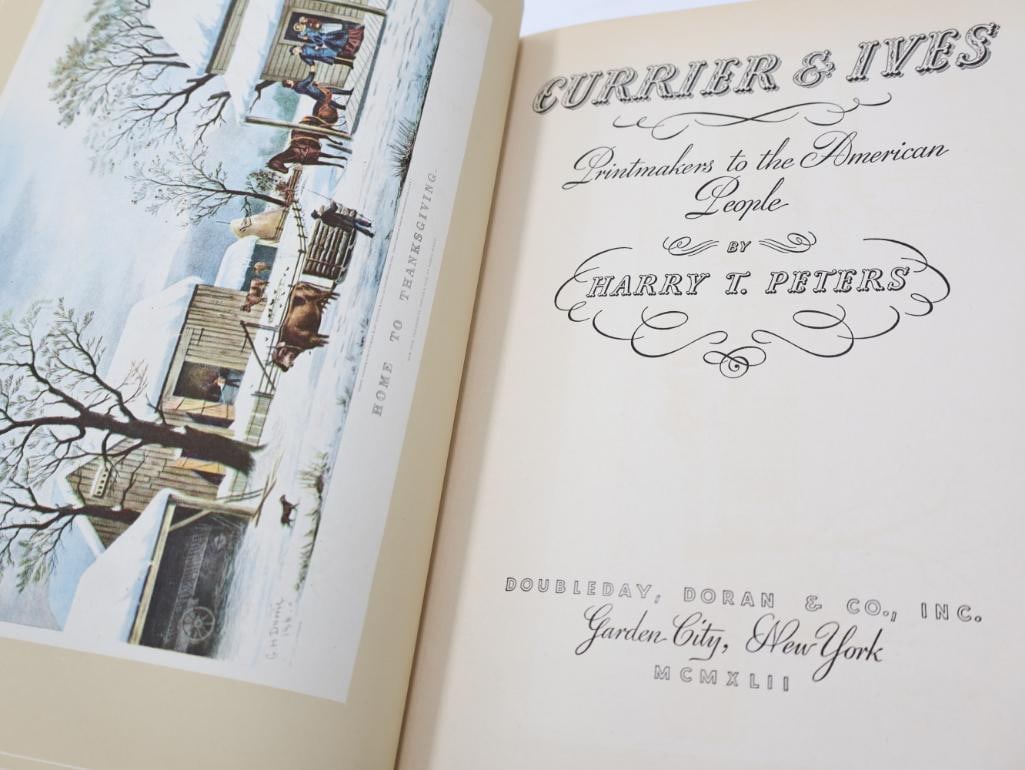 HOME TO THANKSGIVING.
CURRIER & IVES
Printmakers to the American
People
BY
HARRY T. PETERS
DOUBLEDAY, DORAN & CO., INC.
Garden City, New York
MCMXLII